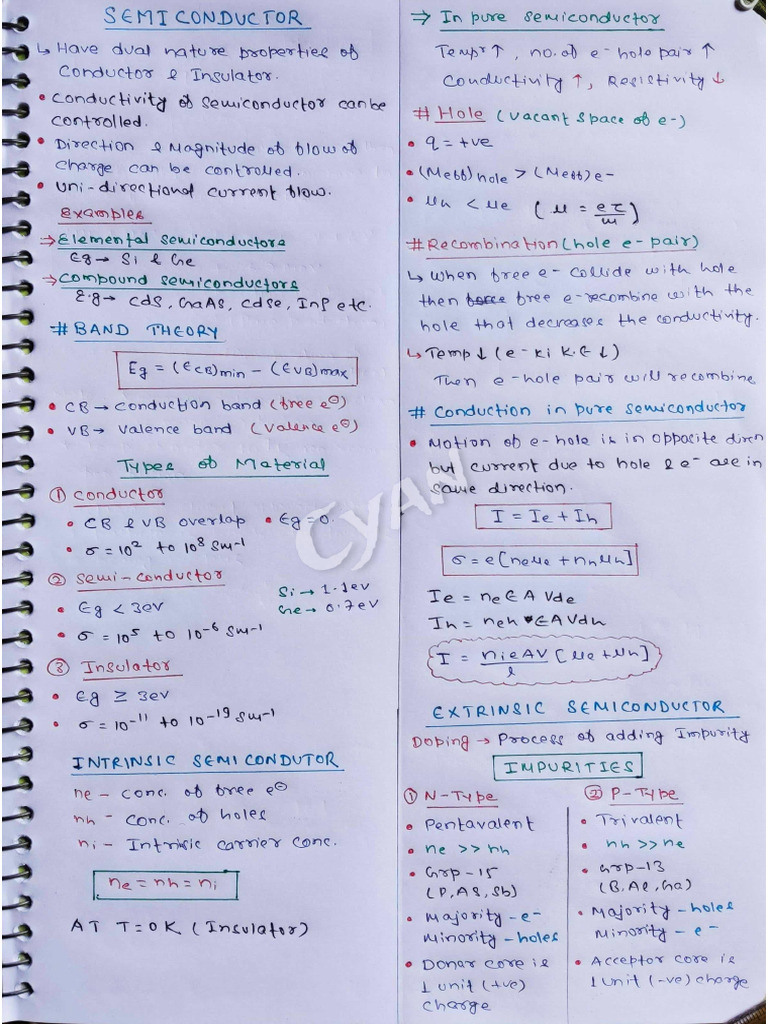 SEMICONDUCTOR
↳ Have dual nature properties of
Conductor & Insulator.
• Conductivity of semiconductor can be
controlled.
• Direction & Magnitude of flow of
charge can be controlled.
• Uni-directional current flow.
Examples
⇒ Elemental semiconductors
Eg → Si & Ge
→ Compound semiconductors
E.g → CdS, GaAs, CdSe, InP etc.
# BAND THEORY
Eg = (ECB)min – (EVB)max
• CB → conduction band (free e⊖)
• VB → Valence band (Valence e⊖)
Types of Material
① Conductor
• CB & VB overlap • Eg = 0.
• σ = 10² to 10⁸ Sm-1
② Semi-conductor
Si → 1.1ev
Ge → 0.7eV
• Eg < 3ev
• σ = 10⁵ to 10⁻⁶ Sm-1
③ Insulator
• Eg ≥ 3ev
• σ = 10⁻¹¹ to 10⁻¹⁹ Sm-1
INTRINSIC SEMICONDUTOR
ne – conc. of free e⊖
nh – conc. of holes
ni – Intrisic carrier conc.
ne = nh = ni
AT T=0K (Insulator)
⇒ In pure semiconductor
Tempr ↑, no. of e-hole pair ↑
Conductivity ↑, Resistivity ↓
# Hole (vacant space of e-)
• q = +ve
• (Meff)hole > (Meff)e-
• μh < μe (μ = eτ/m)
# Recombination (hole e-pair)
↳ When free e- collide with hole
then free e- recombine with the
hole that decreases the conductivity.
↳ Temp ↓ (e- ki K.E ↓)
Then e-hole pair will recombine
# Conduction in pure semiconductor
• Motion of e-hole is in opposite dircn
but current due to hole & e- are in
same direction.
I = Ie + Ih
σ = e[neμe + nhμh]
Ie = neEA Vde
Ih = neh EAVdh
I = nieAV/l [μe + μh]
EXTRINSIC SEMICONDUCTOR
Doping → Process of adding Impurity
IMPURITIES
① N-Type
• Pentavalent
• ne >> nh
• Grp-15
(P, AS, Sb)
• Majority - e-
Minority - holes
• Donar core is
1 unit (+ve)
charge
② P-Type
• Trivalent
• nh >> ne
• Grp-13
(B, Al, Ga)
• Majority - holes
Minority - e-
• Acceptor core is
1 unit (-ve) charge
CYAN